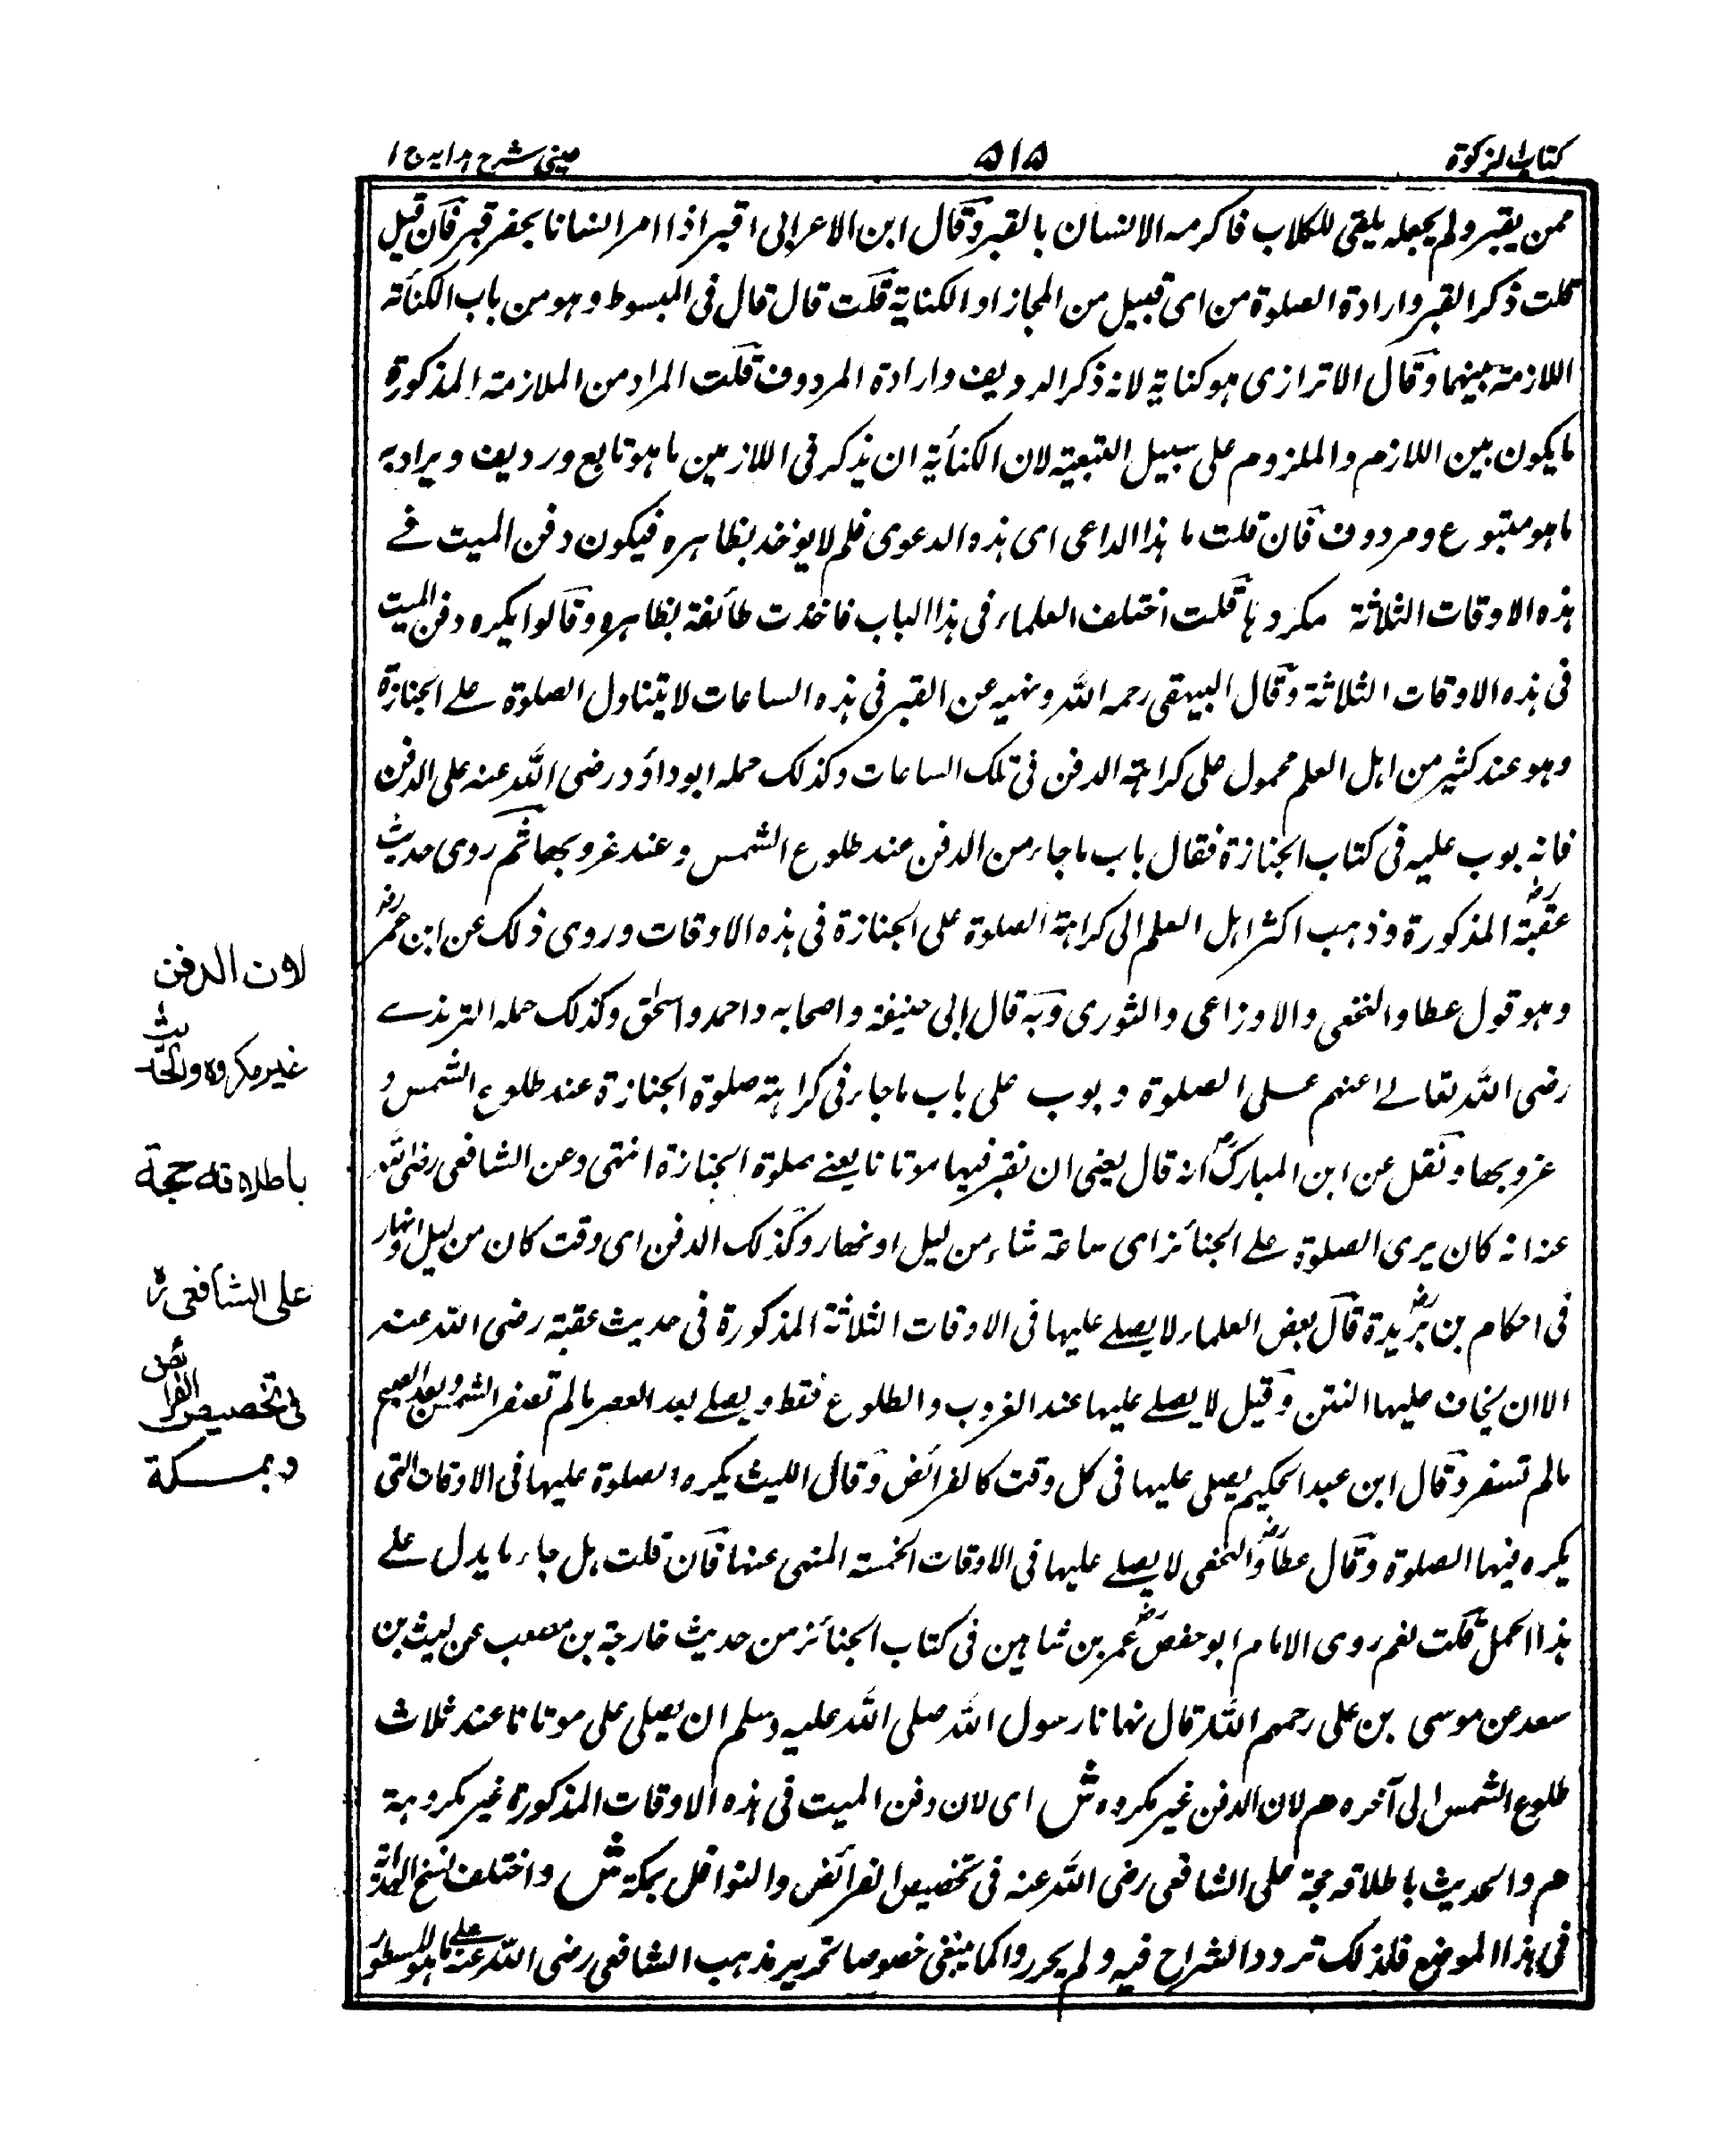 كتاب الزكوة
۵۱۵
عینی شرح ہدایہ ج ۱
ممن يقبر ولم يجعله يلقى للكلاب فاكرمه الانسان بالقبر وقال ابن الاعرابى اقبر اذا امر انسانا بحفر قبر فان قيل
قلت ذكر القبر وارادة الصلوة من اى قبيل من المجاز او الكناية قلت قال قال فى المبسوط وهو من باب الكنأته
اللازمة بينهما وقال الاترازى هو كناية لانه ذكر الرديف وارادة المردوف قلت المراد من الملازمة المذكورة
ما يكون بين اللازم والملزوم على سبيل التبعية لان الكنأية ان يذكر فى اللازمين ما هو تابع ورديف ويراد به
ما هو متبوع ومردوف فان قلت ما هذا الداعى اى هذه الدعوى فلم لا يوخذ بظاهره فيكون دفن الميت فے
هذه الاوقات الثلاثة مكروها قلت اختلف العلماء فى هذا الباب فاخذت طائفة بظاهره وقالوا يكره دفن الميت
فى هذه الاوقات الثلاثة وقال البيهقى رحمه الله ونهيه عن القبر فى هذه الساعات لا يتناول الصلوة علے الجنازة
وهو عند كثير من اهل العلم محمول على كراهة الدفن فى تلك الساعات وكذلك حمله ابو داؤد رضى الله عنه على الدفن
فانه بوب عليه فى كتاب الجنازة فقال باب ما جاء من الدفن عند طلوع الشمس وعند غروبها ثم روى حديث
عقبة رض المذكورة وذهب اكثر اهل العلم الى كراهة الصلوة على الجنازة فى هذه الاوقات وروى ذلك عن ابن عمر رض
وهو قول عطا والنخعى والاوزاعى والثورى وبه قال ابى حنيفة واصحابه واحمد واسحٰق وكذلك حمله الترمذے
رضى الله تعالے عنهم علی الصلوة وبوب على باب ما جاء فى كراهة صلوة الجنازة عند طلوع الشمس و
غروبها ونقل عن ابن المبارك رح انه قال يعنى ان نقبر فيها موتانا يعنے صلوة الجنازة انتهى وعن الشافعى رضى الله
عنه انه كان يرى الصلوة علے الجنائز اى ساعة شاء من ليل او نهار وكذلك الدفن اى وقت كان من ليل او نهار
فى احكام بن بريدة رض قال بعض العلماء لا يصلے عليها فى الاوقات الثلاثة المذكورة فى حديث عقبة رضى الله عند
الا ان يخاف عليها النتن وقيل لا يصلے عليها عند الغروب والطلوع فقط ويصلے بعد العصر ما لم تصفر الشمس وبعد الصبح
ما لم تسفر وقال ابن عبد الحكيم يصلى عليها فى كل وقت كالفرائض وقال الليث يكره الصلوة عليها فى الاوقات التى
يكره فيها الصلوة وقال عطا رض والنخعى لا يصلے عليها فى الاوقات الخمسة المنهى عنها فان قلت هل جاء ما يدل علے
هذا الحمل قلت نعم روى الامام ابو حفص رض عمر بن شاهين فى كتاب الجنائز من حديث خارجة بن مصعب عن ليث بن
سعد عن موسى بن على رحمهم الله قال نهانا رسول الله صلى الله عليه وسلم ان يصلى على موتانا عند ثلاث
طلوع الشمس الى آخره هم لان الدفن غير مكروه ش اى لان دفن الميت فى هذه الاوقات المذكورة غير مكروهة
هم والحديث باطلاقه حجة على الشافعى رضى الله عنه فى تخصيص الفرائض والنوافل بمكة ش واختلف نسخ الهداية
فى هذا الموضع فلذلك تردد الشراح فيه ولم يحرروا كما ينبغى خصوصا تحرير مذهب الشافعى رضى الله عنه على ما هو المسطور
لان الدفن
غير مكروه والحديث
باطلاقه حجة
على الشافعى رح
فى تخصيص الفرائض
وبمكة